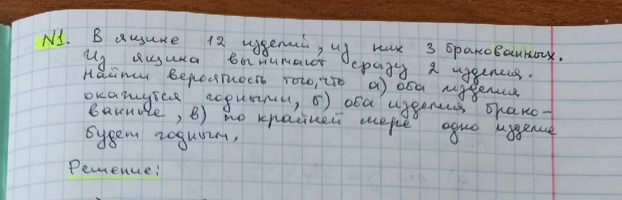 №1. В ящике 12 изделий, из них 3 бракованных.
Из ящика вынимают сразу 2 изделия.
Найти вероятность того, что а) оба изделия
окажутся годными, б) оба изделия брако-
ванные, в) по крайней мере одно изделие
будет годным.
Решение: